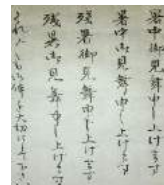 暑中御見舞申し上げます
暑中御見舞申し上げます
残暑御見舞申し上げます
残暑御見舞申し上げます